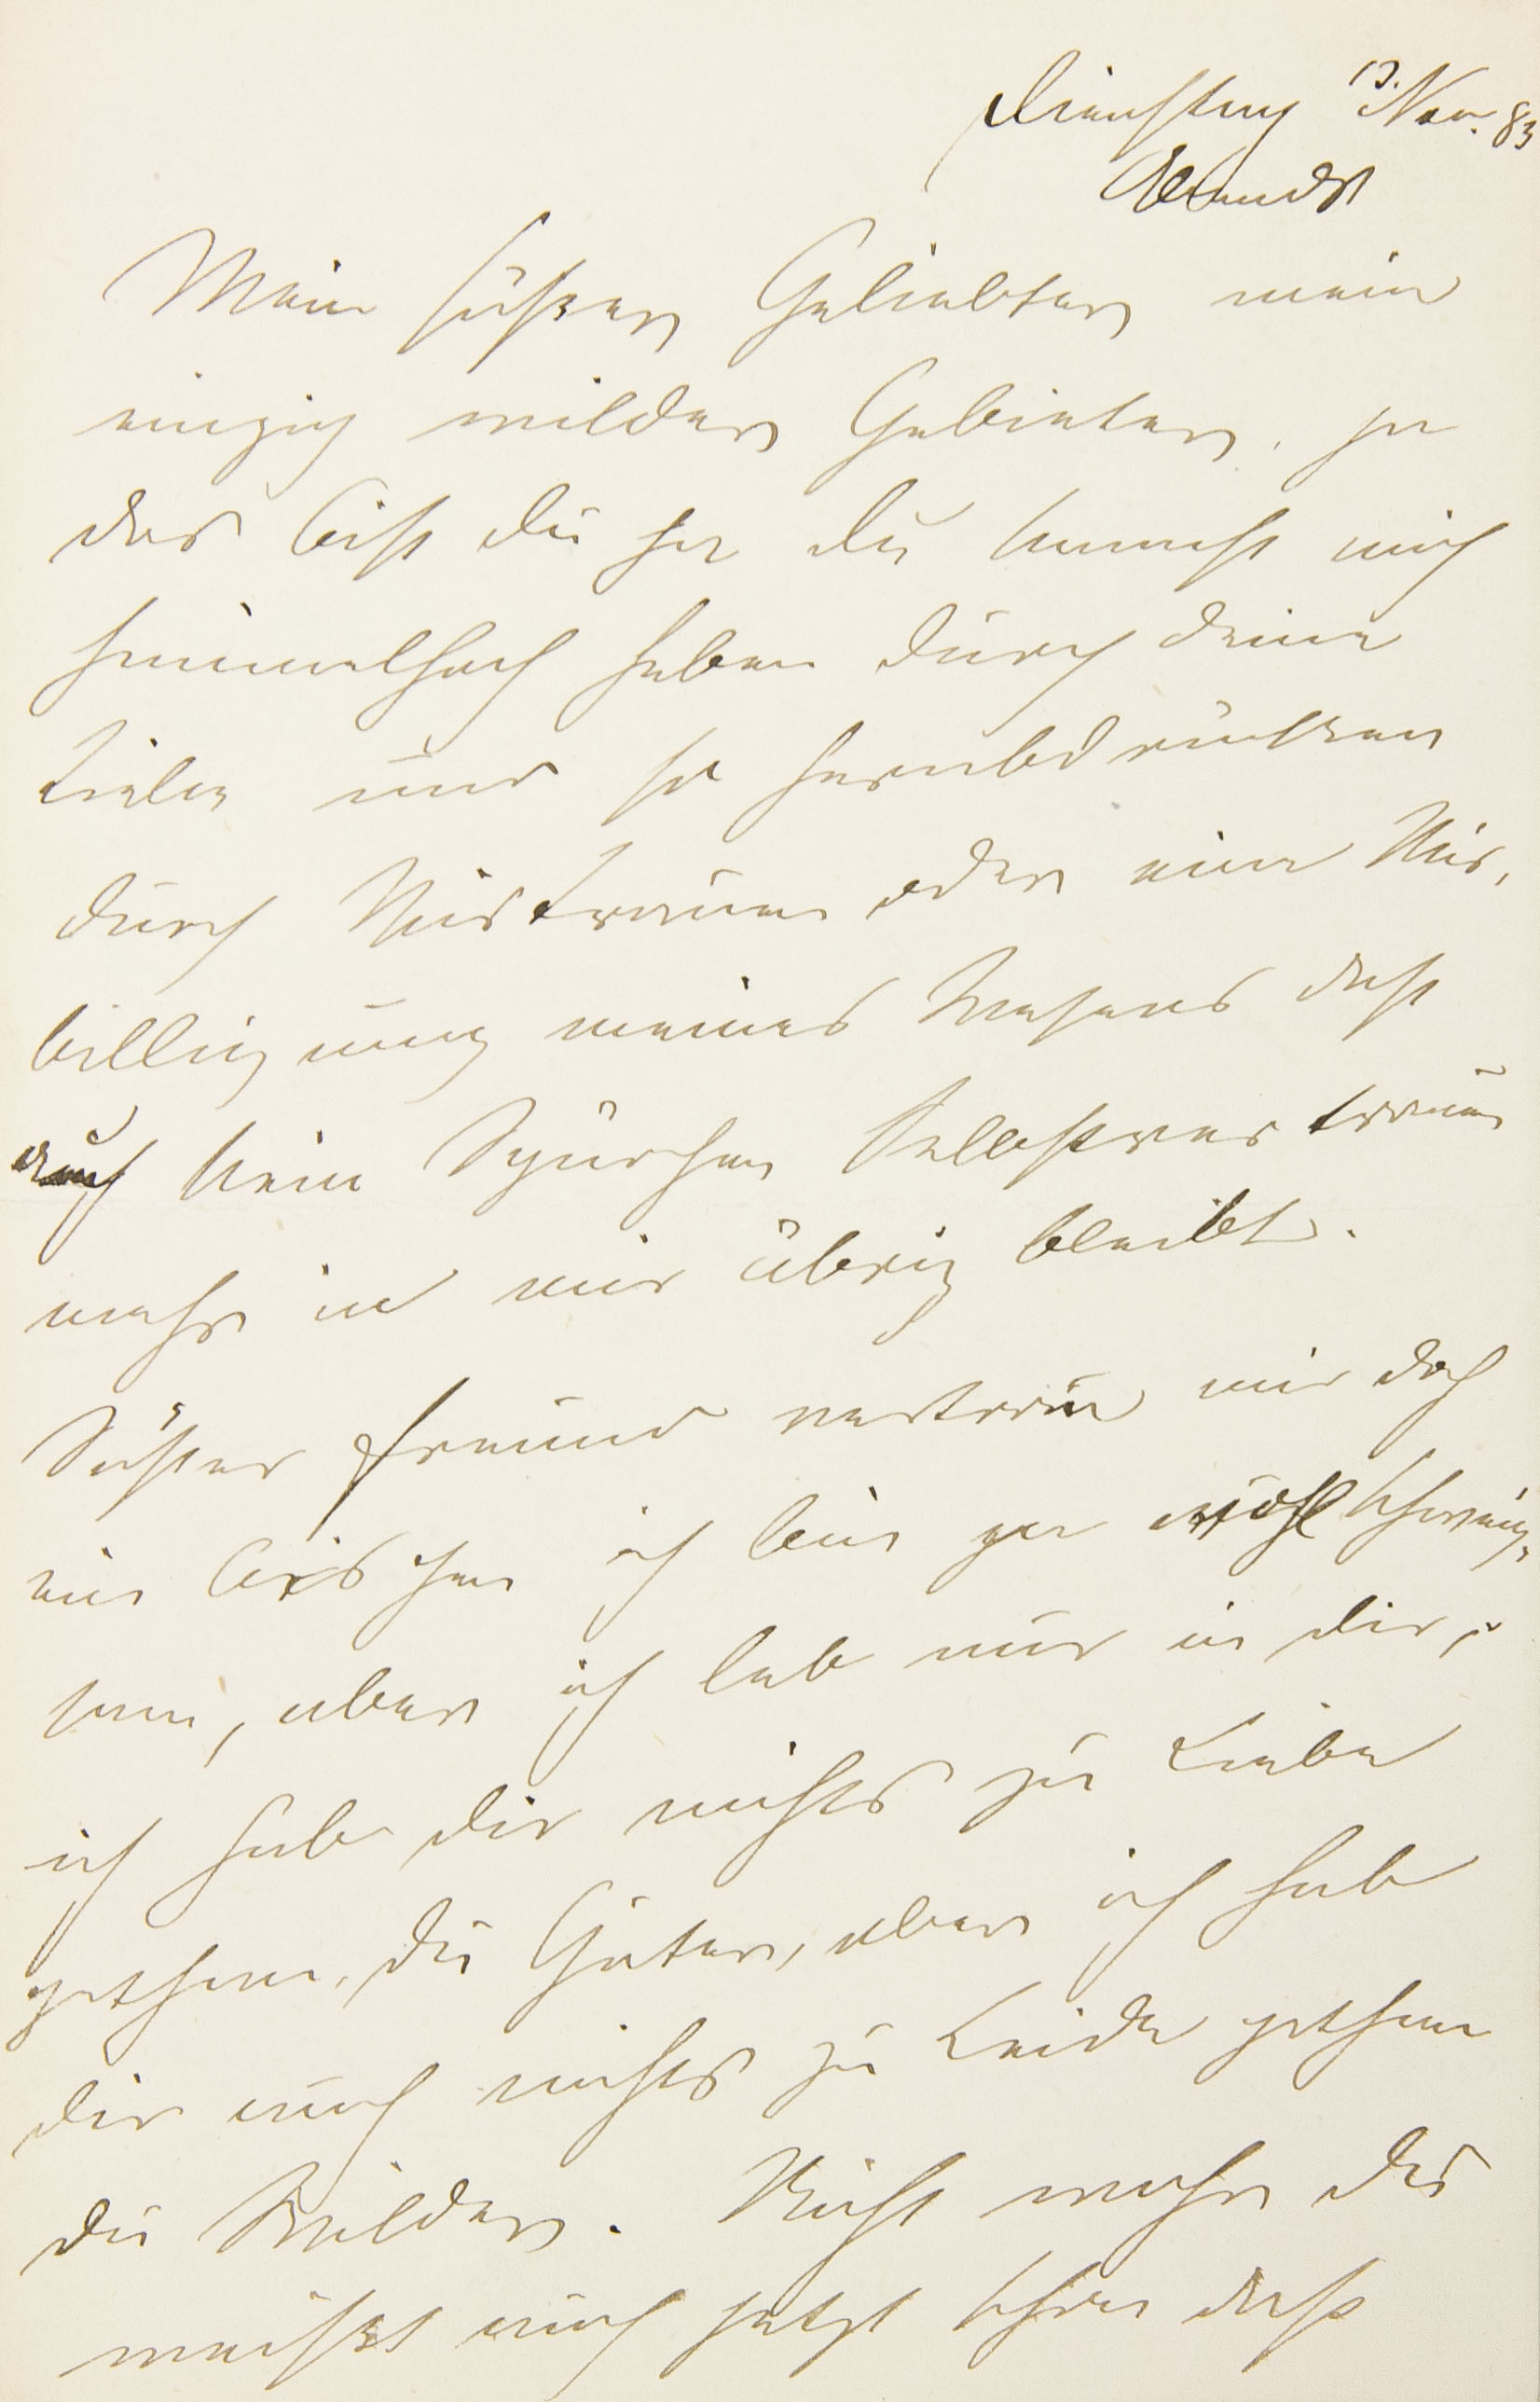 Dienstag 13. Nov. 83
Abends
Mein süßer Geliebter mein
einzig milder Gebieter, ja
das bist du ja du kannst mich
himmelhoch heben durch deine
Liebe und so herabdrücken
durch Mistraun oder eine Mis-
billigung meines Wesens daß
auch kein Spürchen Selbstvertraun
mehr in mir übrig bleibt.
Süßer Freund vertrau mir doch
ein bischen ich bin ja wohl schweig-
sam, aber ich leb nur in dir,
ich hab dir nichts zu Liebe
gethan, du Guter, aber ich hab
dir auch nichts zu Leide gethan
du Milder. Nicht wahr du
weißt auch jetzt schon daß